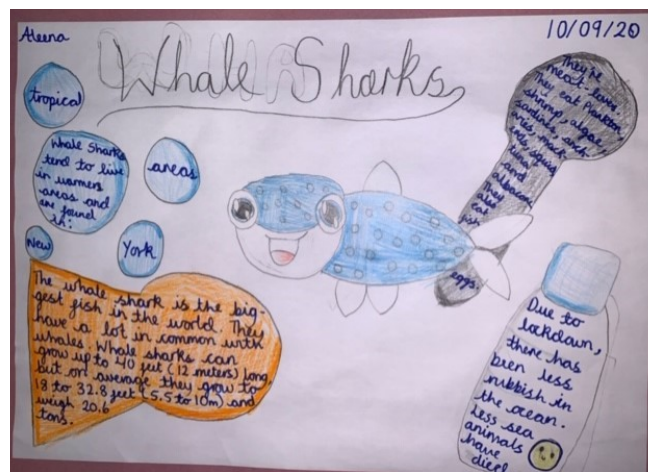 Aleena
10/09/20
Whale Sharks
tropical
Whale Sharks
tend to live
in warmers
areas and
are found
in:
areas
New
York
The whale shark is the big-
gest fish in the world. They
have a lot in common with
whales. Whale sharks can
grow up to 40 feet (12 meters) long
but on average they grow to
18 to 32.8 feet (5.5 to 10m) and
weigh 20.6
tons.
They're
meat lovers
They eat Plankton
shrimp, algae
sardines, anch
ovies, mack
erels, squids,
tuna
and
albacore.
They
also
eat
fish
eggs.
Due to
lockdown,
there has
been less
rubbish in
the ocean.
Less sea
animals
have
died